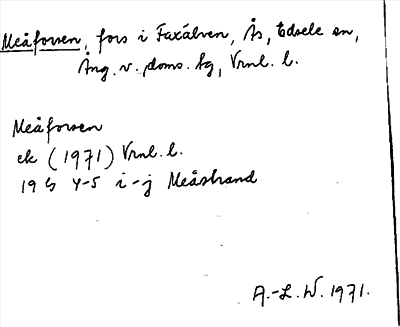 Meåforsen, fors i Faxälven, Ås, Edsele sn,
Ång. v. doms. hg, Vrnl. l.
Meåforsen
ek (1971) Vrnl. l.
19 G 4-5 i-j Meåstrand
A.-L. W. 1971.